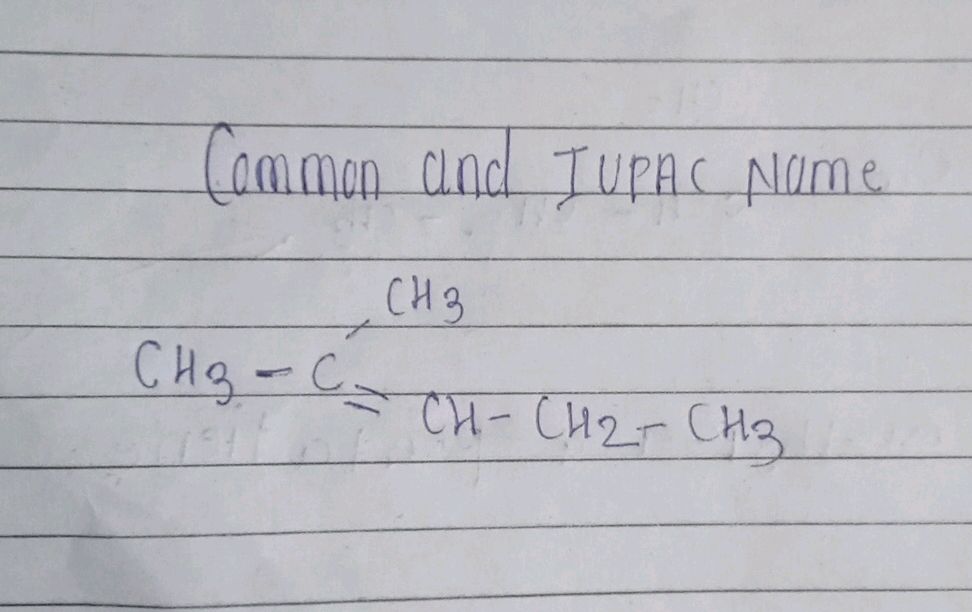 Common and IUPAC Name
CH3
CH3 - C
= CH - CH2 - CH3